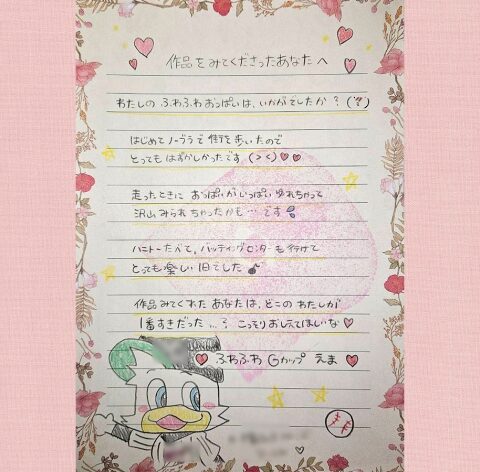 作品をみてくださったあなたへ
わたしの ふわふわおっぱいは、いかがでしたか?
はじめてノーブラで街を歩いたので
とってもはずかしかったです(><)♥♥
走ったときに おっぱいがいっぱいゆれちゃって
沢山みられちゃったかも…です
ハニトーたべて、バッティングセンターも行けて
とっても楽しい1日でした♪
作品みてくれた あなたは、どこの わたしが
1番すきだった…? こっそりおしえてほしいな♥
♥ ふわふわ Gカップ えま ♥